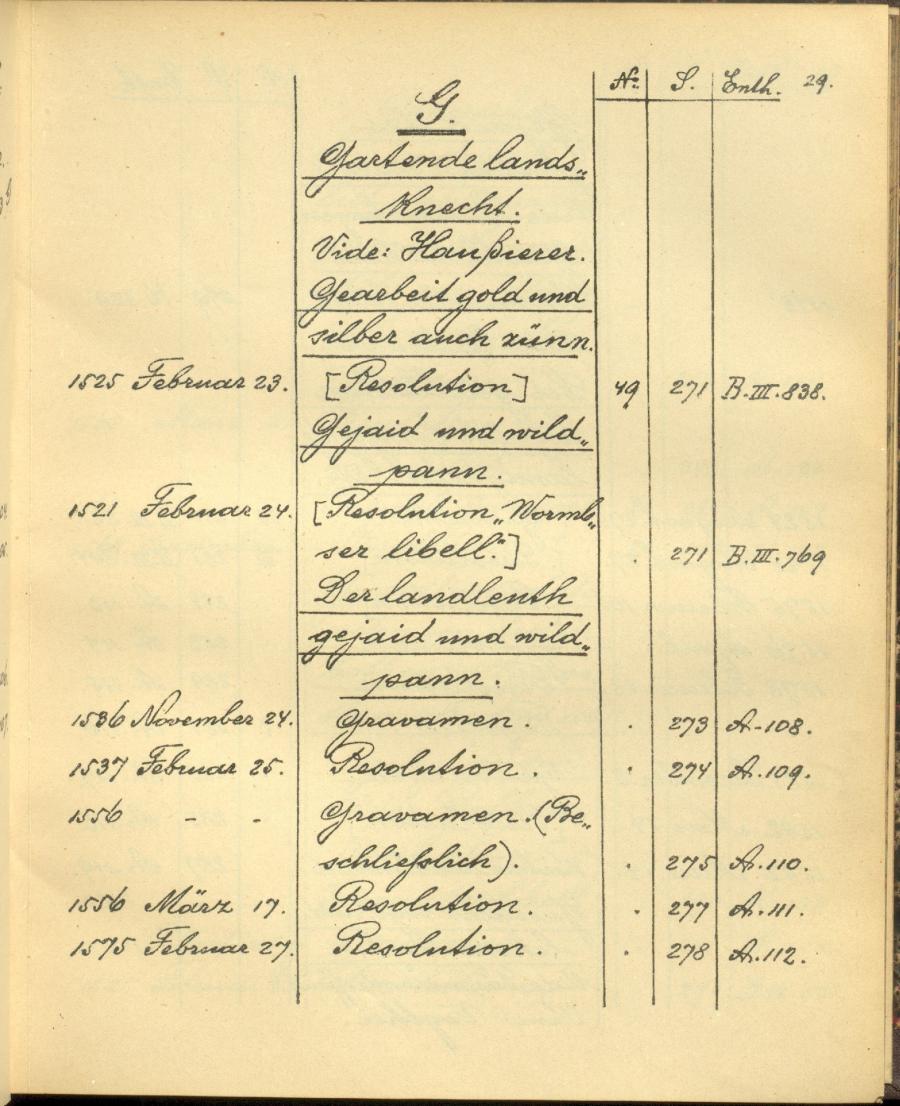 No. S. Enth. 29.
G.
Gartende lands„
Knecht.
Vide: Haußierer.
Gearbeit gold und
silber auch zünn.
1525 Februar 23. [Resolution] 49 271 B.III.838.
Gejaid und wild„
pann.
1521 Februar 24. [Resolution „Wormb„
ser libell."] . 271 B.III.769
Der landleuth
gejaid und wild„
pann.
1536 November 24. Gravamen. . 273 A.108.
1537 Februar 25. Resolution. . 274 A.109.
1556 - - Gravamen. (Be„
schließlich). . 275 A.110.
1556 März 17. Resolution. . 277 A.111.
1575 Februar 27. Resolution. . 278 A.112.